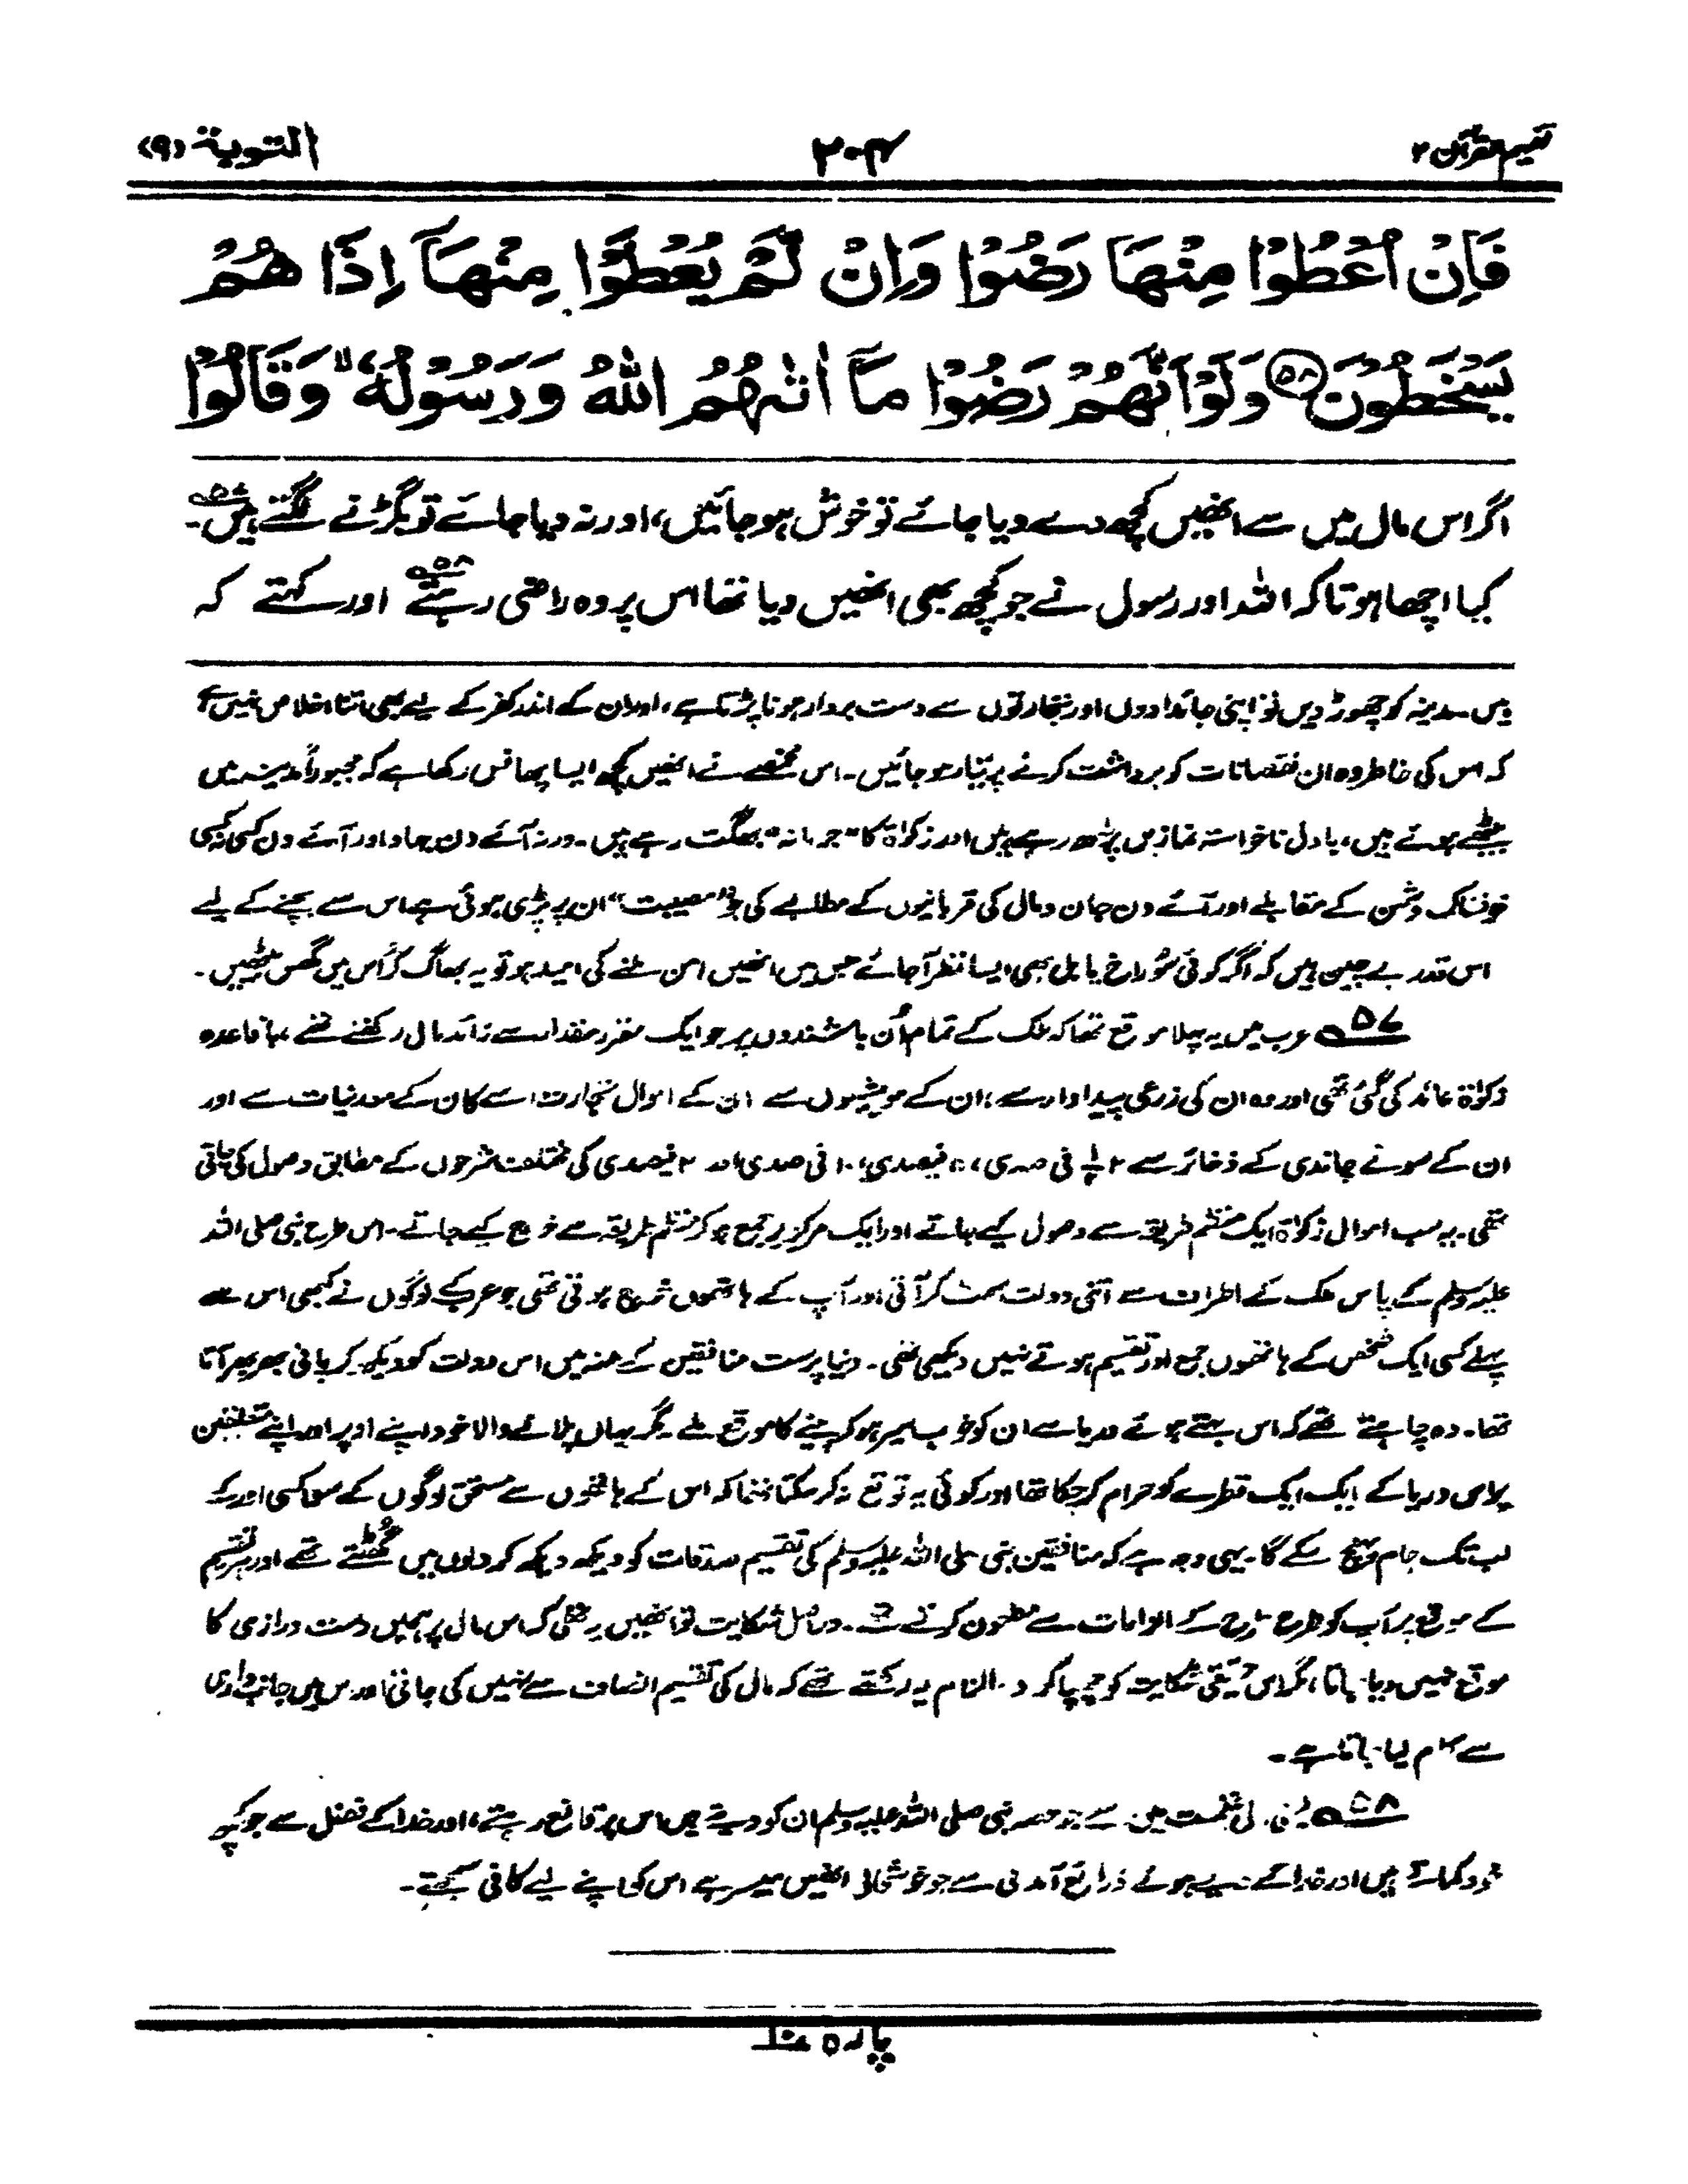 تفہیم القرآن ۲
۲۰۴
التوبة (۹)
فَاِنْ اُعْطُوْا مِنْهَا رَضُوْا وَاِنْ لَّمْ يُعْطَوْا مِنْهَآ اِذَا هُمْ
يَسْخَطُوْنَ ﴿۵۸﴾ وَلَوْ اَنَّهُمْ رَضُوْا مَآ اٰتٰىهُمُ اللّٰهُ وَرَسُوْلُهٗ ۙ وَقَالُوْا
اگر اس مال میں سے انھیں کچھ دے دیا جائے تو خوش ہو جائیں، اور نہ دیا جائے تو بگڑنے لگتے ہیں۔ ۵۷
کیا اچھا ہوتا کہ اللہ اور رسول نے جو کچھ بھی انھیں دیا تھا اس پر وہ راضی رہتے ۵۸ اور کہتے کہ
ہیں۔ مدینہ کو چھوڑ دیں تو اپنی جائدادوں اور تجارتوں سے دست بردار ہونا پڑتا ہے، اور ان کے اندر کفر کے لیے بھی اتنا اخلاص نہیں ہے
کہ اس کی خاطر وہ ان نقصانات کو برداشت کرنے پر تیار ہو جائیں۔ اس مخمصے نے انھیں کچھ ایسا پھانس رکھا ہے کہ مجبوراً مدینہ میں
بیٹھے ہوئے ہیں، بادل ناخواستہ نمازیں پڑھ رہے ہیں اور زکوٰۃ کا "جرمانہ" بھگت رہے ہیں۔ ورنہ آئے دن جہاد اور آئے دن کسی نہ کسی
خوفناک دشمن کے مقابلے اور آئے دن جان و مال کی قربانیوں کے مطالبے کی جو "مصیبت" ان پر پڑی ہوئی ہے اس سے بچنے کے لیے
اس قدر بے چین ہیں کہ اگر کوئی سُوراخ یا بل بھی ایسا نظر آجائے جس میں انھیں امن ملنے کی امید ہو تو یہ بھاگ کر اُس میں گھس بیٹھیں۔
۵۷ عرب میں یہ پہلا موقع تھا کہ ملک کے تمام اُن باشندوں پر جو ایک مقرر مقدار سے زائد مال رکھتے تھے، باقاعدہ
زکوٰۃ عائد کی گئی تھی اور وہ ان کی زرعی پیداوار سے، ان کے مویشیوں سے، ان کے اموال تجارت سے، ان کے معدنیات سے اور
ان کے سونے چاندی کے ذخائر سے ۲½ فی صدی، ۵ فیصدی، ۱۰ فی صدی اور ۲۰ فیصدی کی مختلف شرحوں کے مطابق وصول کی جاتی
تھی۔ یہ سب اموال زکوٰۃ ایک منظم طریقہ سے وصول کیے جاتے اور ایک مرکز پر جمع ہو کر منظم طریقہ سے خرچ کیے جاتے۔ اس طرح نبی صلی اللہ
علیہ وسلم کے پاس ملک کے اطراف سے اتنی دولت سمٹ کر آتی اور آپ کے ہاتھوں خرچ ہوتی تھی جو عرب کے لوگوں نے کبھی اس سے
پہلے کسی ایک شخص کے ہاتھوں جمع اور تقسیم ہوتے نہیں دیکھی تھی۔ دنیا پرست منافقین کے منہ میں اس دولت کو دیکھ کر پانی بھر بھر آتا
تھا۔ وہ چاہتے تھے کہ اس بہتے ہوئے دریا سے ان کو خوب سیر ہو کر پینے کا موقع ملے، مگر یہاں پلانے والا خود اپنے اوپر اور اپنے متعلقین
پر اس دریا کے ایک ایک قطرے کو حرام کر چکا تھا اور کوئی یہ توقع نہ کر سکتا تھا کہ اس کے ہاتھوں سے مستحق لوگوں کے سوا کسی اور کے
لب تک جام پہنچ سکے گا۔ یہی وجہ ہے کہ منافقین نبی صلی اللہ علیہ وسلم کی تقسیم صدقات کو دیکھ دیکھ کر دلوں میں گُھٹتے تھے اور تقسیم
کے موقع پر آپ کو طرح طرح کے الزامات سے مطعون کرتے تھے۔ دراصل شکایت تو انھیں یہ تھی کہ اس مال پر ہمیں دست درازی کا
موقع نہیں دیا جاتا، مگر اس حقیقی شکایت کو چھپا کر وہ الزام یہ رکھتے تھے کہ مال کی تقسیم انصاف سے نہیں کی جاتی اور اس میں جانب داری
سے کام لیا جاتا ہے۔
۵۸ یعنی مال غنیمت میں سے جو حصہ نبی صلی اللہ علیہ وسلم ان کو دیتے ہیں اس پر قانع رہتے، اور خدا کے فضل سے جو کچھ
خود کماتے ہیں اور خدا کے دیے ہوئے ذرائع آمدنی سے جو خوشحالی انھیں میسر ہے اس کو اپنے لیے کافی سمجھتے۔
پارہ ۱۰